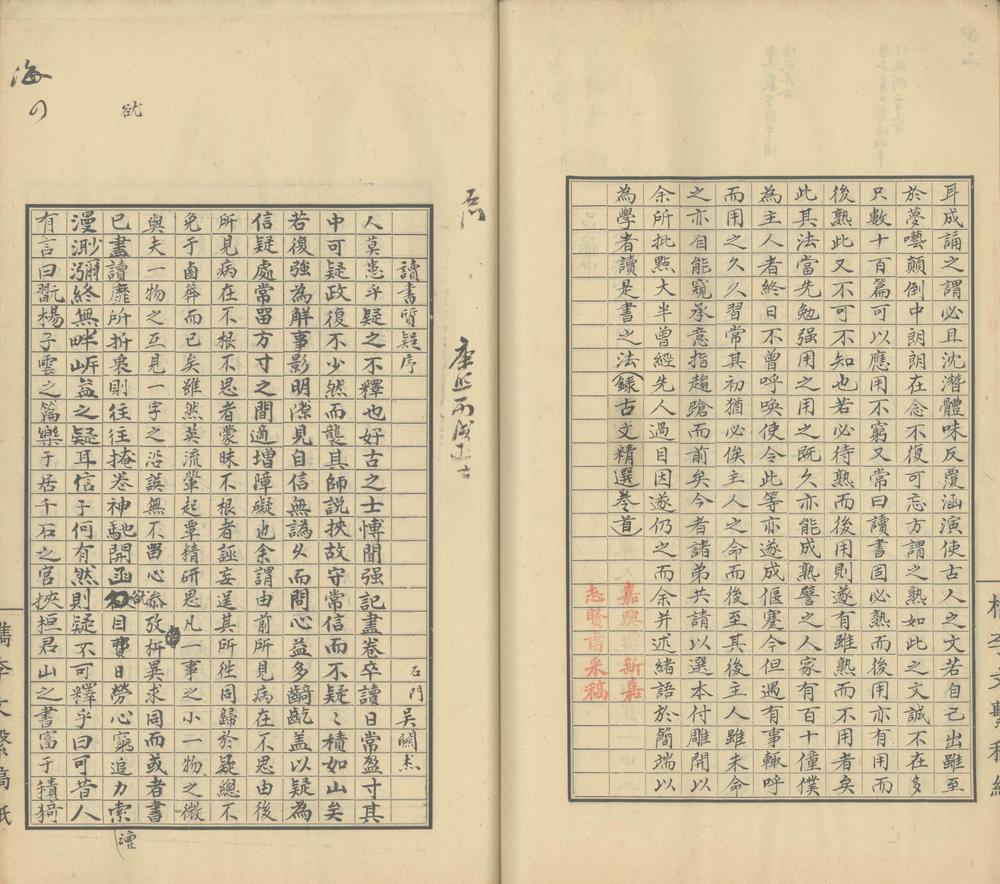 耳成誦之謂必且沈潛體味反覆涵演使古人之文若自己出雖至
於夢囈顛倒中朗朗在念不復可忘方謂之熟如此之文誠不在多
只數十百篇可以應用不窮又常曰讀書固必熟而後用亦有用而
後熟此又不可不知也若必待熟而後用則遂有雖熟而不用者矣
此其法當先勉强用之用之既久亦能成熟譬之人家有百十僮僕
為主人者終日不曾呼喚使令此等亦遂成偃蹇今但遇有事輙呼
而用之久久習常其初猶必俟主人之命而後至其後主人雖未命
之亦自能窺承意指趨蹌而前矣今者諸弟共請以選本付雕開以
余所批點大半曾經先人過目因遂仍之而余并述緒語於簡端以
為學者讀是書之法錄古文精選卷首
嘉興 新嘉
志賢甫采稿
康熙丙戌進士
讀書質疑序
石門 吳關杰
人莫患乎疑之不釋也好古之士博聞强記盡卷卒讀日常盈寸其
中可疑政復不少然而襲其師説挾故守常信而不疑〻積如山矣
若復強為解事影明隙見自信無譌久而問心益多齟齕盖以疑為
信疑處常畱方寸之間適增障礙也余謂由前所見病在不思由後
所見病在不根不思者蒙昧不根者誣妄逞其所徃同歸於疑總不
免于鹵莽而已矣雖然英流輩起覃精研思凡一事之小一物之微
與夫一物之互見一字之沿誤無不畱心叅攷枅異求同而或者書
已盡讀靡所折衷則往往掩卷神馳開函 欲 目費日勞心窮追力索
漫渺瀰終無畔㟁益之疑耳信于何有然則疑不可釋乎曰可昔人
有言曰翫楊子雲之篇樂于居千石之官挾桓君山之書富于積猗
欲
海
檇李文繫稿紙